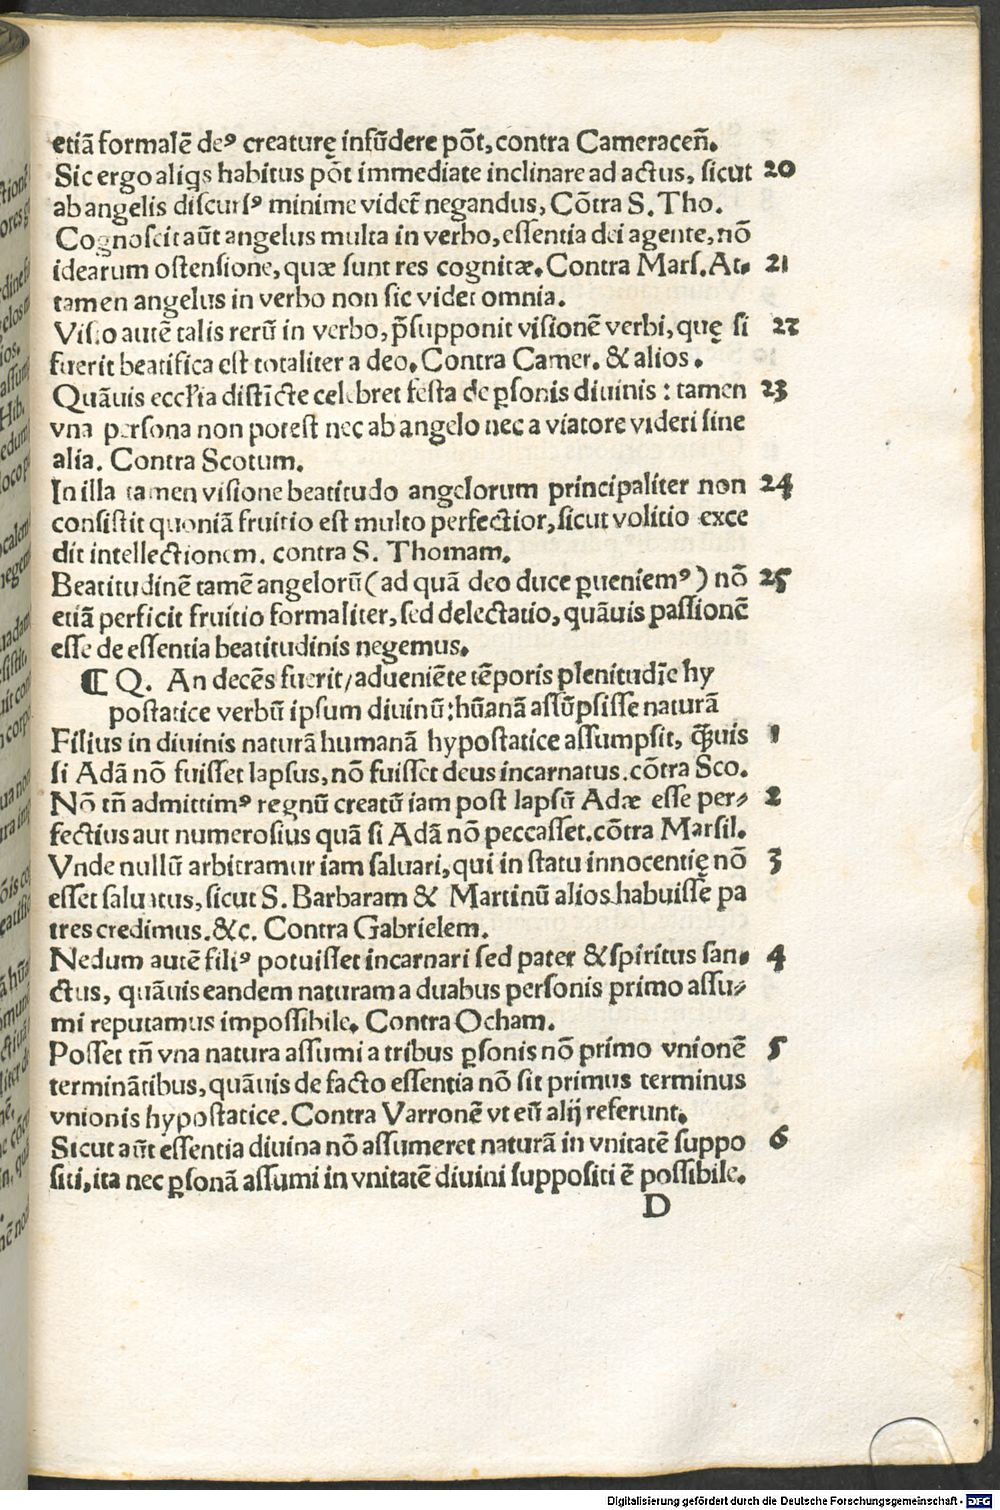 etiã formalẽ deꝰ creaturę infũdere põt, contra Cameraceñ.
Sic ergo aliq̃s habitus põt immediate inclinare ad actus, sicut 20
ab angelis discursꝰ minime videt̃ negandus, Cõtra S. Tho.
Cognoscit aũt angelus multa in verbo, essentia dei agente, nõ
idearum ostensione, quæ sunt res cognitæ. Contra Mars. At- 21
tamen angelus in verbo non sic videt omnia.
Visio autẽ talis rerũ in verbo, p̃supponit visionẽ verbi, quę si 22
fuerit beatifica est totaliter a deo. Contra Camer. & alios.
Quãuis eccl'ia distĩcte celebret festa de ꝑsonis diuinis : tamen 23
vna persona non potest nec ab angelo nec a viatore videri sine
alia. Contra Scotum.
In illa tamen visione beatitudo angelorum principaliter non 24
consistit quoniã fruitio est multo perfectior, sicut volitio exce
dit intellectionem. contra S. Thomam.
Beatitudinẽ tamẽ angelorũ ( ad quã deo duce ꝑueniemꝰ ) nõ 25
etiã perficit fruitio formaliter, sed delectatio, quãuis passionẽ
esse de essentia beatitudinis negemus.
¶ Q. An decẽs fuerit / adueniẽte tẽporis plenitudĩe hy
postatice verbũ ipsum diuinũ: hũanã assũpsisse naturã
Filius in diuinis naturã humanã hypostatice assumpsit, ꝙ̃uis 1
si Adã nõ fuisset lapsus, nõ fuisset deus incarnatus. cõtra Sco.
Nõ tñ admittimꝰ regnũ creatũ iam post lapsũ Adæ esse per- 2
fectius aut numerosius quã si Adã nõ peccasset. cõtra Marsil.
Vnde nullũ arbitramur iam saluari, qui in statu innocentię nõ 3
esset saluatus, sicut S. Barbaram & Martinũ alios habuissẽ pa
tres credimus. &c. Contra Gabrielem.
Nedum autẽ filiꝰ potuisset incarnari sed pater & spiritus san- 4
ctus, quãuis eandem naturam a duabus personis primo assu-
mi reputamus impossibile. Contra Ocham.
Posset tñ vna natura assumi a tribus ꝑsonis nõ primo vnionẽ 5
terminãtibus, quãuis de facto essentia nõ sit primus terminus
vnionis hypostatice. Contra Varronẽ vt eũ alij referunt.
Sicut aũt essentia diuina nõ assumeret naturã in vnitatẽ suppo 6
siti, ita nec ꝑsonã assumi in vnitatẽ diuini suppositi ẽ possibile.
D
Digitalisierung gefördert durch die Deutsche Forschungsgemeinschaft - DFG